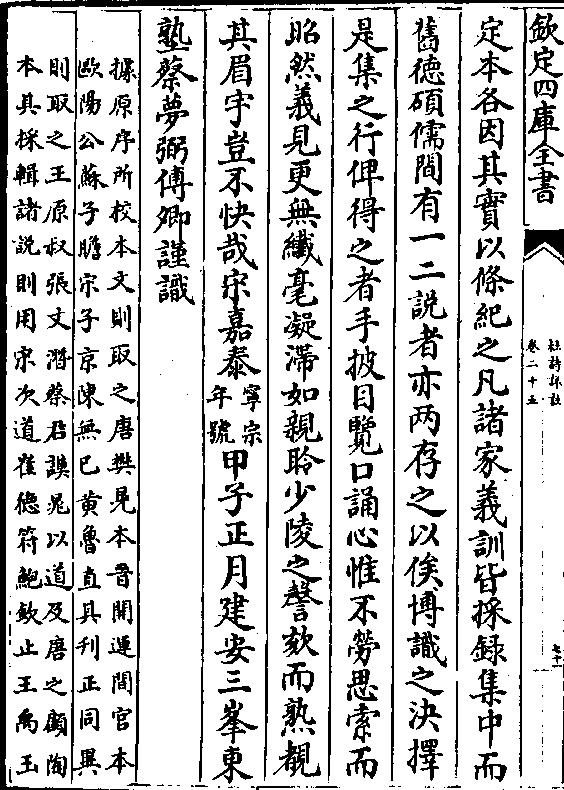 欽定四庫全書
杜詩詳註
卷二十五
七十一
定本各因其實以條紀之凡諸家義訓皆採録集中而
舊徳碩儒間有一二説者亦两存之以俟博識之決擇
是集之行俾得之者手披目覽口誦心惟不勞思索而
昭然義見更無纎毫凝滯如親聆少陵之謦欬而熟覩
其眉宇豈不快哉宋嘉泰寧宗年號甲子正月建安三峯東
塾蔡夢弼傅卿謹識
據原序所校本文則取之唐樊晃本晉開運間官本
歐陽公蘇子瞻宋子京陳無已黄魯直其刋正同異
則取之王原叔張文潛蔡君謨晁以道及唐之顧陶
本其採輯諸説則用宋次道崔徳符鮑欽止王禹玉